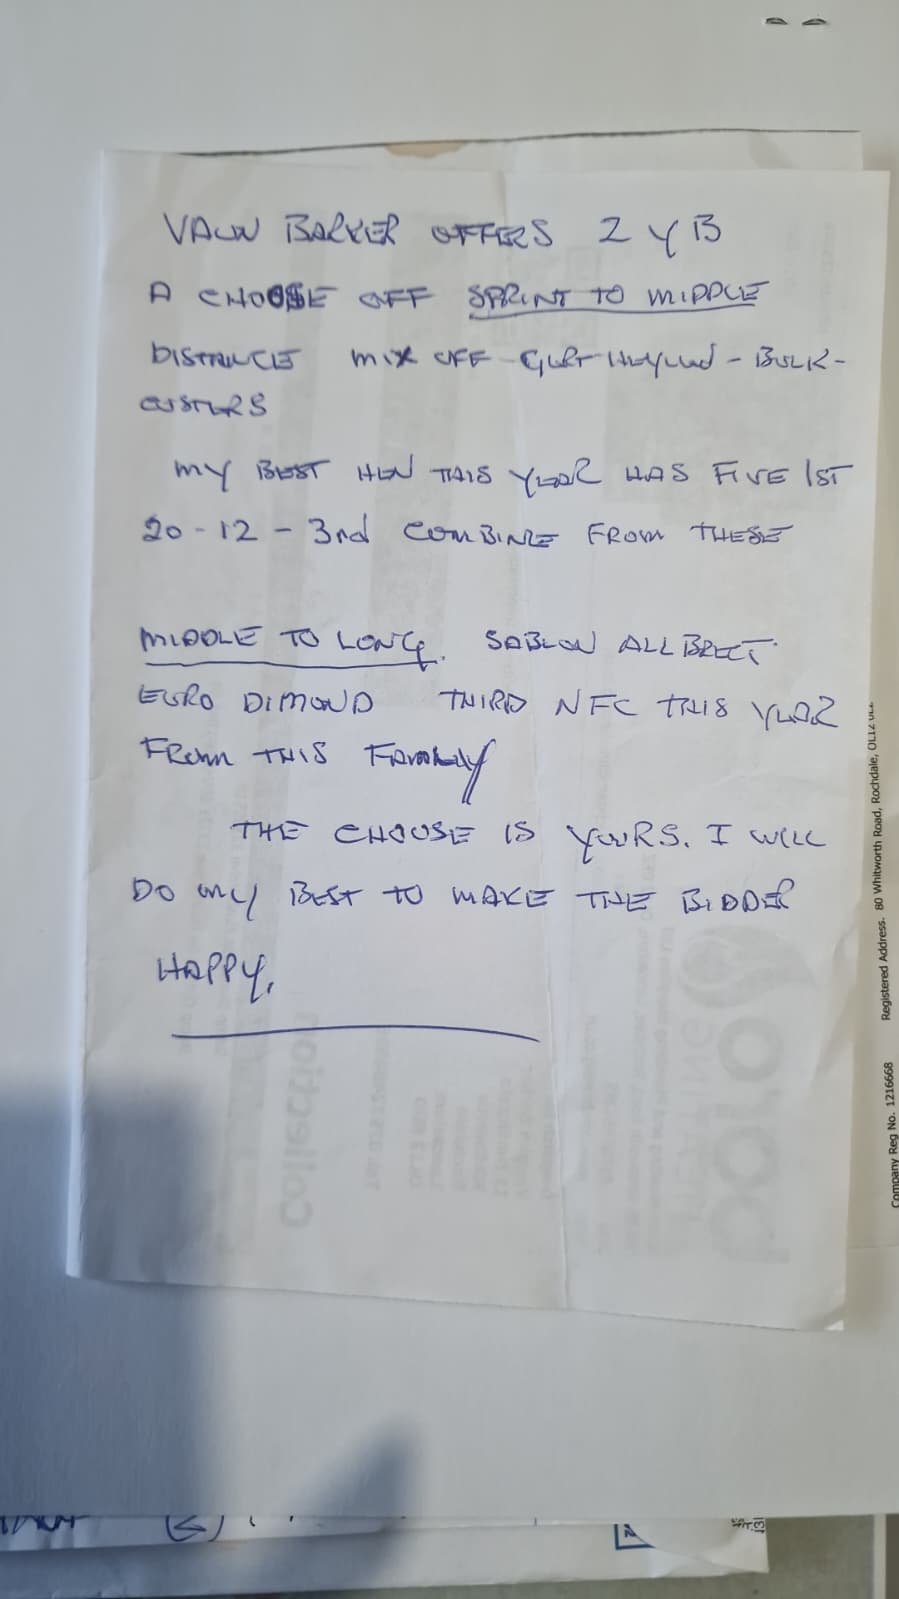 VAUN BARKER OFFERS 2 YB
A CHOOSE OFF SPRINT TO MIDDLE
DISTANCE MIX OFF - - BULK-
MY BEST HEN THIS YEAR HAS FIVE 1ST
20-12 - 3rd COMBINE FROM THESE
MIDDLE TO LONG. SABLON ALLBRECT.
EURO DIMOND THIRD NFC THIS YEAR
FROM THIS FAMILY
THE CHOUSE IS YOURS. I WILL
DO MY BEST TO MAKE THE BIDDER
HAPPY.
Company Reg No. 1216668 Registered Address. 80 Whitworth Road, Rochdale,